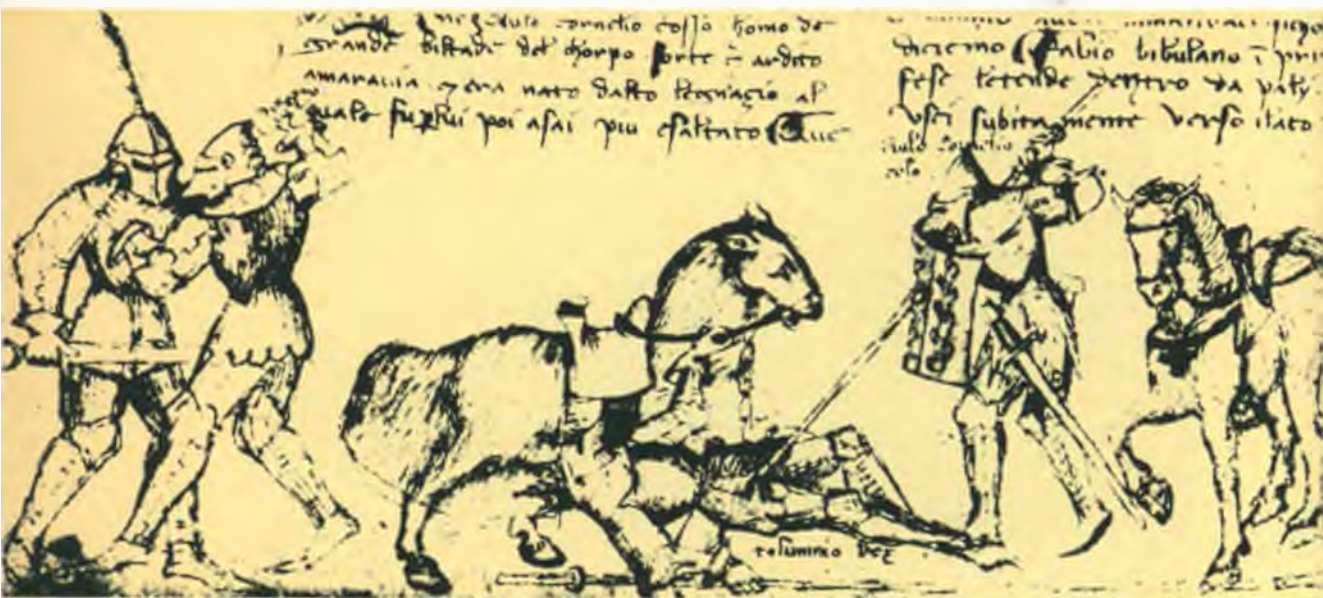 cornelio cosso homo de
grande biltade del chorpo forte e ardito
amaraulia era nato dalto legnagio al
quale fu plui poi asai piu esaltato Que
diremo fabio bibulano i pri
fese letende dentro da valy
Usci subita mente verso ilato
aulo cornelio
coso
tolumnio Rex